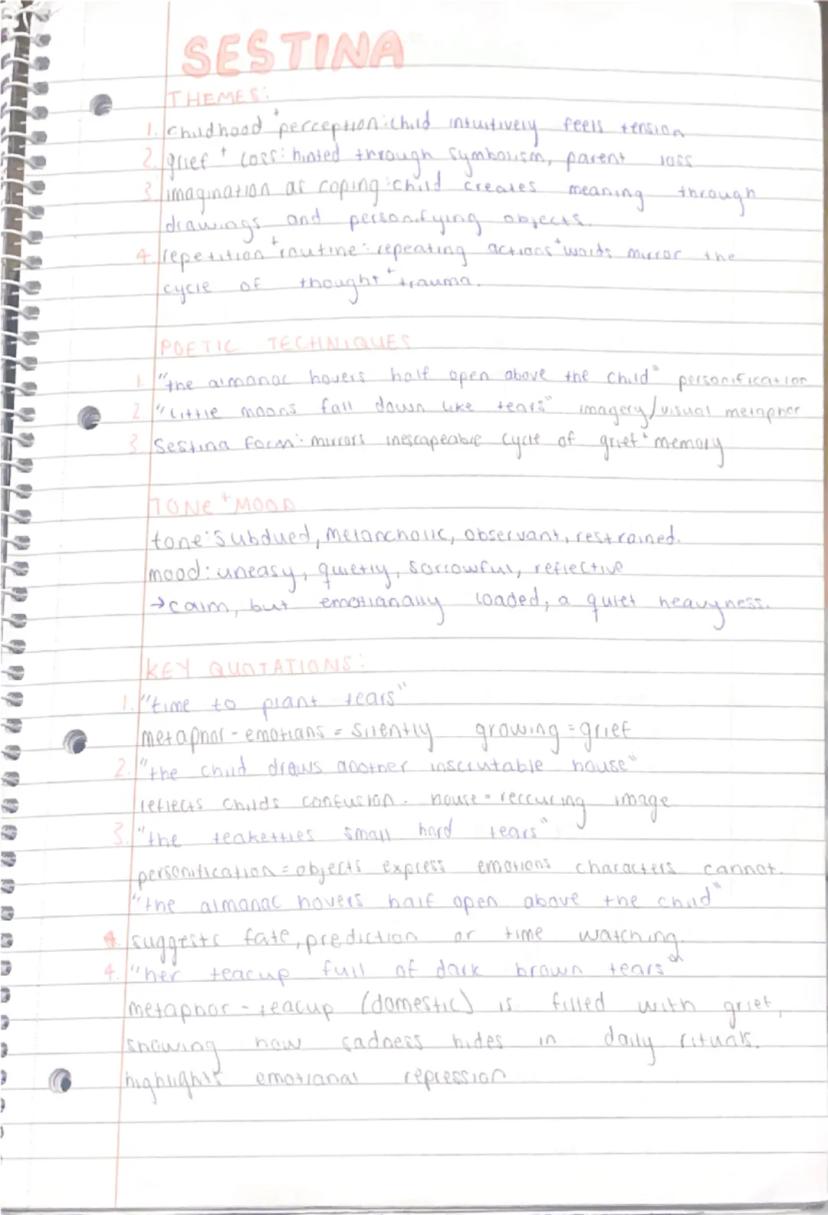 SESTINA
THEMES:
1. childhood + perception: child intuitively feels tension
2. grief + loss: hinted through symbolism, parent loss
3. imagination as coping: child creates meaning through
drawings and personifying objects.
4. repetition + routine: repeating actions + words mirror the
cycle of thought + trauma.
POETIC TECHNIQUES
1. "the almanac hovers half open above the child" personification
2. "little moons fall down like tears" imagery/visual metaphor
3. Sestina form: mirrors inescapeable cycle of grief + memory
TONE + MOOD
tone: subdued, melancholic, observant, restrained.
mood: uneasy, quietly, sorrowful, reflective
→ calm, but emotionally loaded, a quiet heavyness.
KEY QUOTATIONS:
1. "time to plant tears"
metaphor - emotions = silently growing = grief
2. "the child draws another inscrutable house"
reflects childs confusion. house = reccuring image
3. "the teakettles small hard tears"
personification = objects express emotions characters cannot.
"the almanac hovers half open above the child"
4. suggests fate, prediction or time watching.
4. "her teacup full of dark brown tears"
metaphor - teacup (domestic) is filled with grief,
showing how sadness hides in daily rituals.
highlights emotional repression